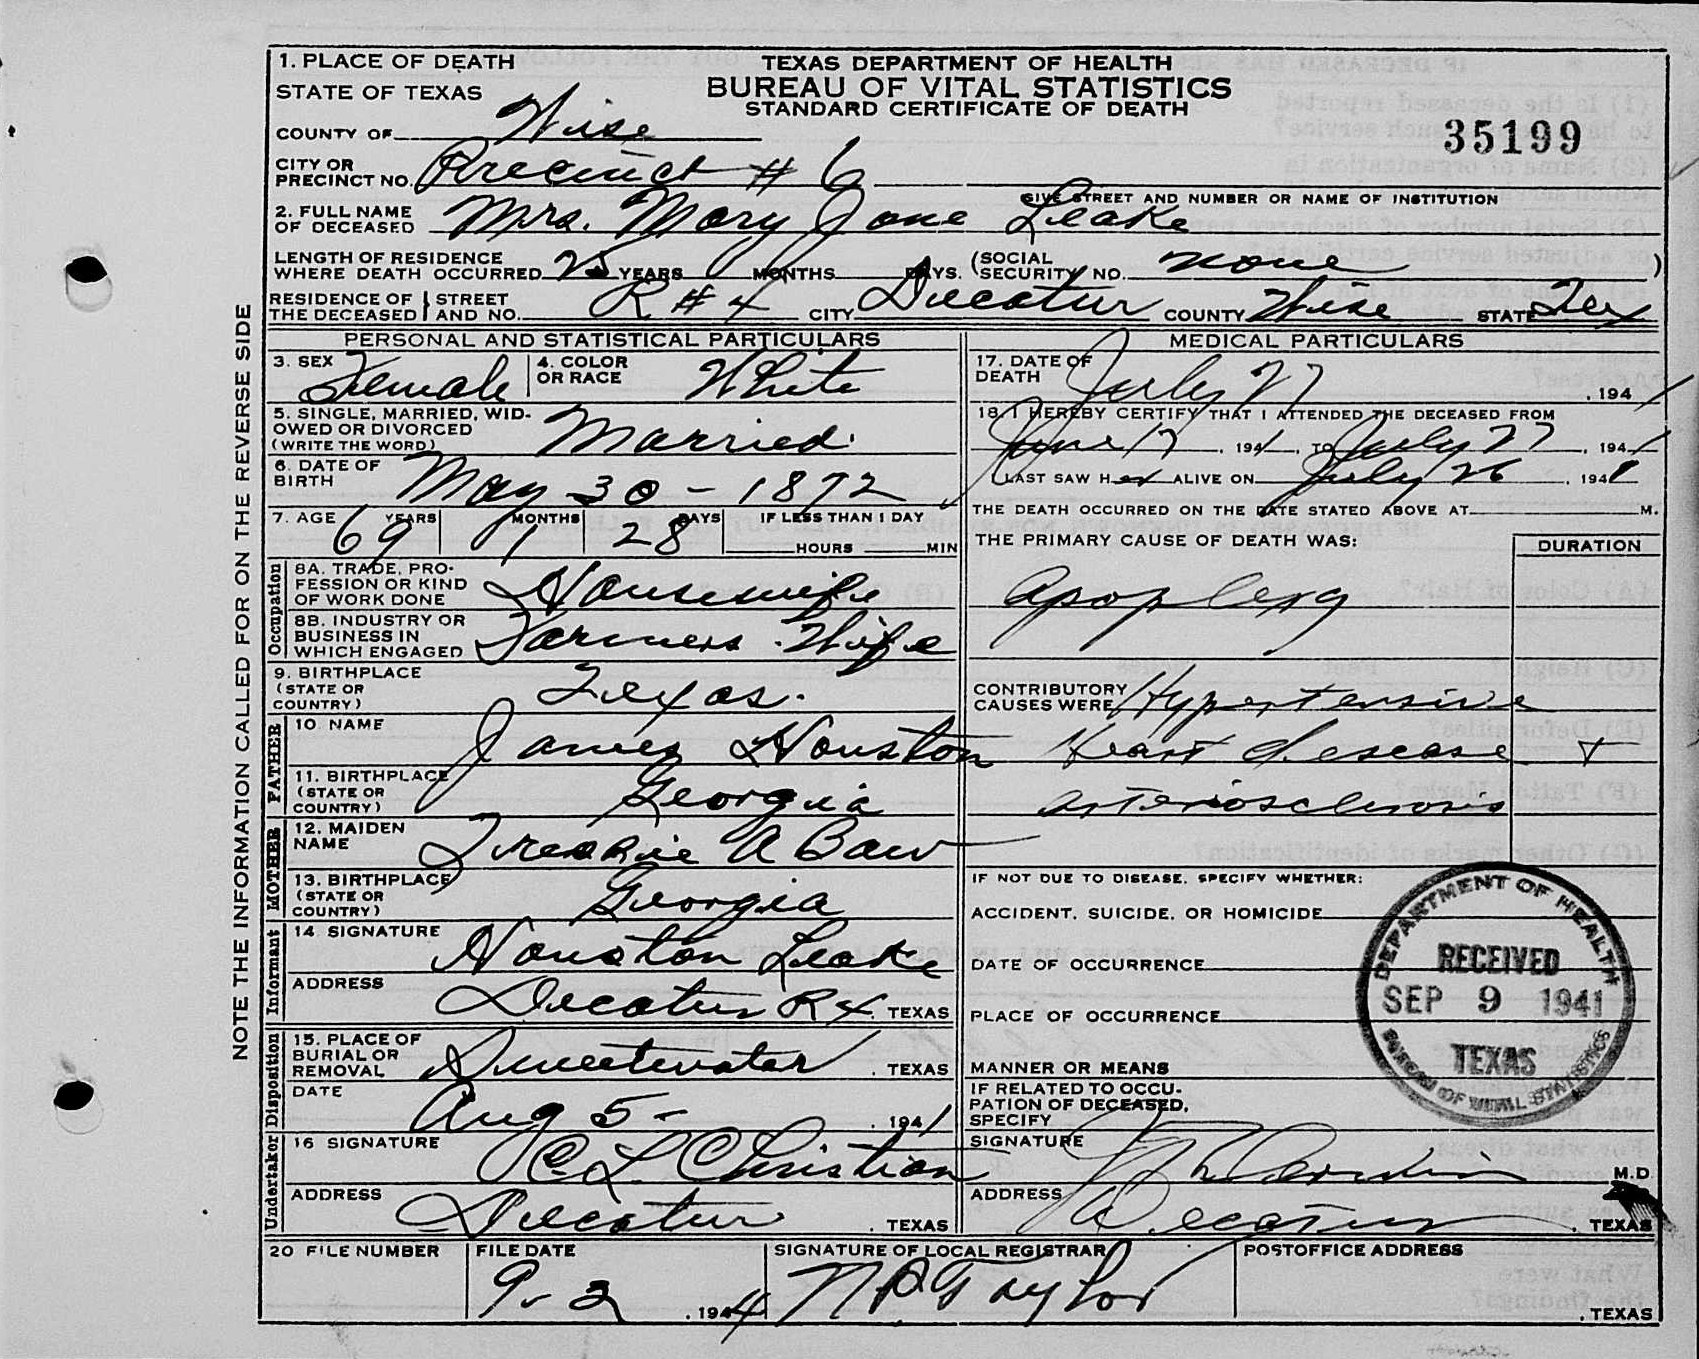 1. PLACE OF DEATH
STATE OF TEXAS
TEXAS DEPARTMENT OF HEALTH
BUREAU OF VITAL STATISTICS
STANDARD CERTIFICATE OF DEATH
35199
COUNTY OF Wise
CITY OR PRECINCT NO. Precinct # 6
GIVE STREET AND NUMBER OR NAME OF INSTITUTION
2. FULL NAME OF DECEASED Mrs. Mary Jane Leake
LENGTH OF RESIDENCE WHERE DEATH OCCURRED 25 YEARS MONTHS DAYS. (SOCIAL SECURITY NO. none)
RESIDENCE OF THE DECEASED STREET AND NO. R # 4 CITY Decatur COUNTY Wise STATE Tex
NOTE THE INFORMATION CALLED FOR ON THE REVERSE SIDE
PERSONAL AND STATISTICAL PARTICULARS
3. SEX Female 4. COLOR OR RACE White
5. SINGLE, MARRIED, WIDOWED OR DIVORCED (WRITE THE WORD) Married
6. DATE OF BIRTH May 30 - 1872
7. AGE 69 YEARS 1 MONTHS 28 DAYS IF LESS THAN 1 DAY HOURS MIN
Occupation
8A. TRADE, PROFESSION OR KIND OF WORK DONE Housewife
8B. INDUSTRY OR BUSINESS IN WHICH ENGAGED Farmers Wife
9. BIRTHPLACE (STATE OR COUNTRY) Texas.
FATHER
10. NAME James Houston
11. BIRTHPLACE (STATE OR COUNTRY) Georgia
MOTHER
12. MAIDEN NAME A
13. BIRTHPLACE (STATE OR COUNTRY) Georgia
Informant
14. SIGNATURE Houston Leake
ADDRESS Decatur R 4. TEXAS
Disposition
15. PLACE OF BURIAL OR REMOVAL Sweetwater . TEXAS
DATE Aug 5 - . 1941
Undertaker
16 SIGNATURE C L Christian
ADDRESS Decatur . TEXAS
MEDICAL PARTICULARS
17. DATE OF DEATH July 27 . 1941
18. I HEREBY CERTIFY THAT I ATTENDED THE DECEASED FROM
June 17 . 1941, TO July 27 . 1941
I LAST SAW Her ALIVE ON July 26 . 1941
THE DEATH OCCURRED ON THE DATE STATED ABOVE AT M.
THE PRIMARY CAUSE OF DEATH WAS: DURATION
apoplexy
CONTRIBUTORY CAUSES WERE Hypertensive
Heart disease +
arteriosclerosis
IF NOT DUE TO DISEASE, SPECIFY WHETHER:
ACCIDENT, SUICIDE, OR HOMICIDE
DATE OF OCCURRENCE
PLACE OF OCCURRENCE
MANNER OR MEANS
IF RELATED TO OCCUPATION OF DECEASED, SPECIFY
SIGNATURE M.D.
ADDRESS Decatur . TEXAS
DEPARTMENT OF HEALTH
RECEIVED
SEP 9 1941
TEXAS
BUREAU OF VITAL STATISTICS
20 FILE NUMBER FILE DATE SIGNATURE OF LOCAL REGISTRAR POSTOFFICE ADDRESS
9 - 2 . 194 Taylor . TEXAS